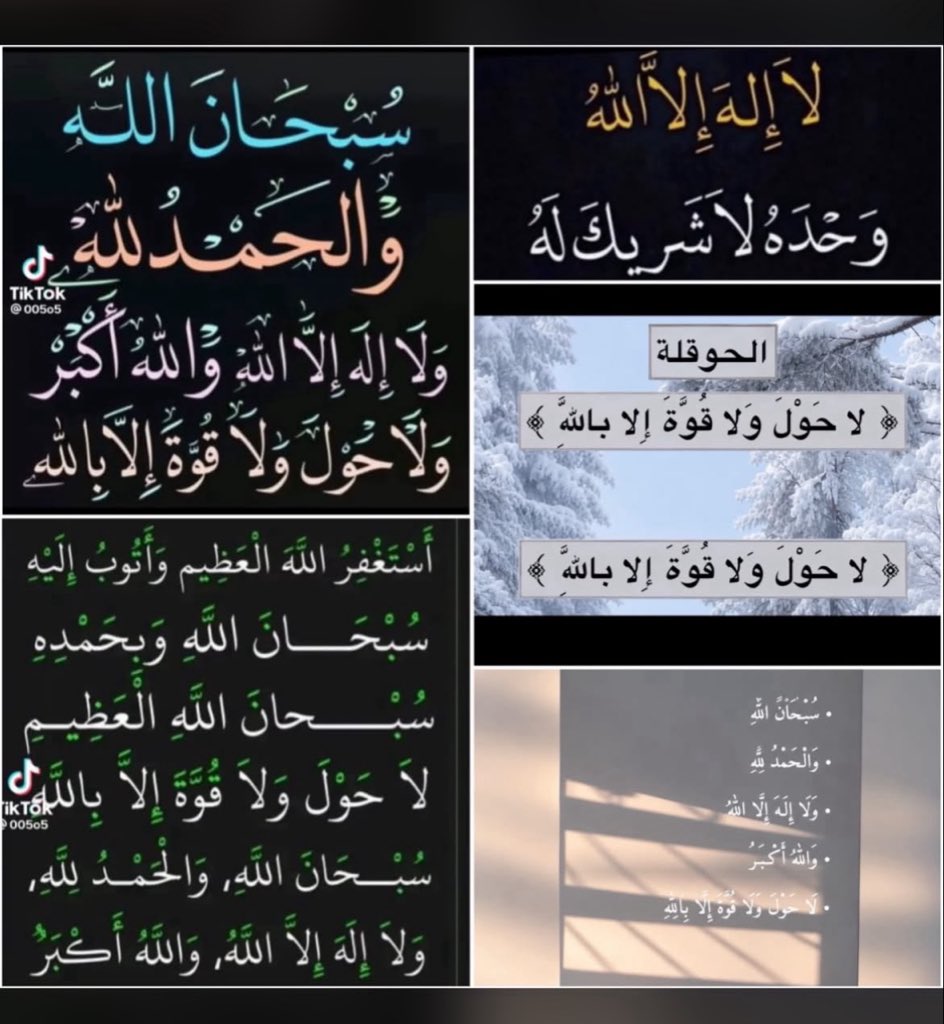 سُبْحَانَ اللَّه
وَالْحَمْدُ لِلَّهِ
وَلَا إِلَهَ إِلَّا اللهُ وَاللهُ أَكْبَر
وَلَا حَوْلَ وَلَا قُوَّةَ إِلَّا بِاللهِ
TikTok
@005o5
لاَ إِلَهَ إِلاَّ اللهُ
وَحْدَهُ لاَ شَرِيكَ لَهُ
الحوقلة
﴿ لا حَوْلَ وَلا قُوَّةَ إِلا بِاللهِ ﴾
﴿ لا حَوْلَ وَلا قُوَّةَ إِلا بِاللهِ ﴾
أَسْتَغْفِرُ اللَّهَ الْعَظِيم وَأَتُوبُ إِلَيْهِ
سُبْحَـــانَ اللَّهِ وَبِحَمْدِهِ
سُبْـــحانَ اللَّهِ الْعَظِيـمِ
لاَ حَوْلَ وَلاَ قُوَّةَ إِلاَّ بِاللَّهِ
سُبْـحَانَ اللَّهِ، وَالْحَمْـدُ لِلَّهِ،
وَلاَ إِلَهَ إِلاَّ اللَّهُ، وَاللَّهُ أَكْبَرُ
TikTok
@005o5
• سُبْحَانَ اللَّهِ
• وَالْحَمْدُ لِلَّهِ
• وَلَا إِلَهَ إِلَّا اللهُ
• وَاللهُ أَكْبَرُ
• لَا حَوْلَ وَلَا قُوَّةَ إِلَّا بِاللهِ